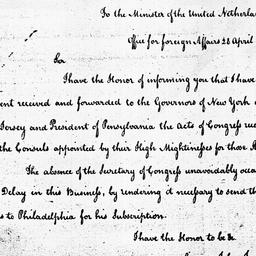 To the Minister of the United Netherlan
Office for foreign Affairs 28 April
Sir
I have the Honor of informing you that I have
ent received and forwarded to the Governors of New York
Jersey and President of Pensylvania the Acts of Congress rec
the Consuls appointed by their High Mightinesses for those
The absence of the Secretary of Congress unavoidably occa
Delay in this Business, by rendering it necessary to send th
s to Philadelphia for his Subscription.
I have the Honor to be &